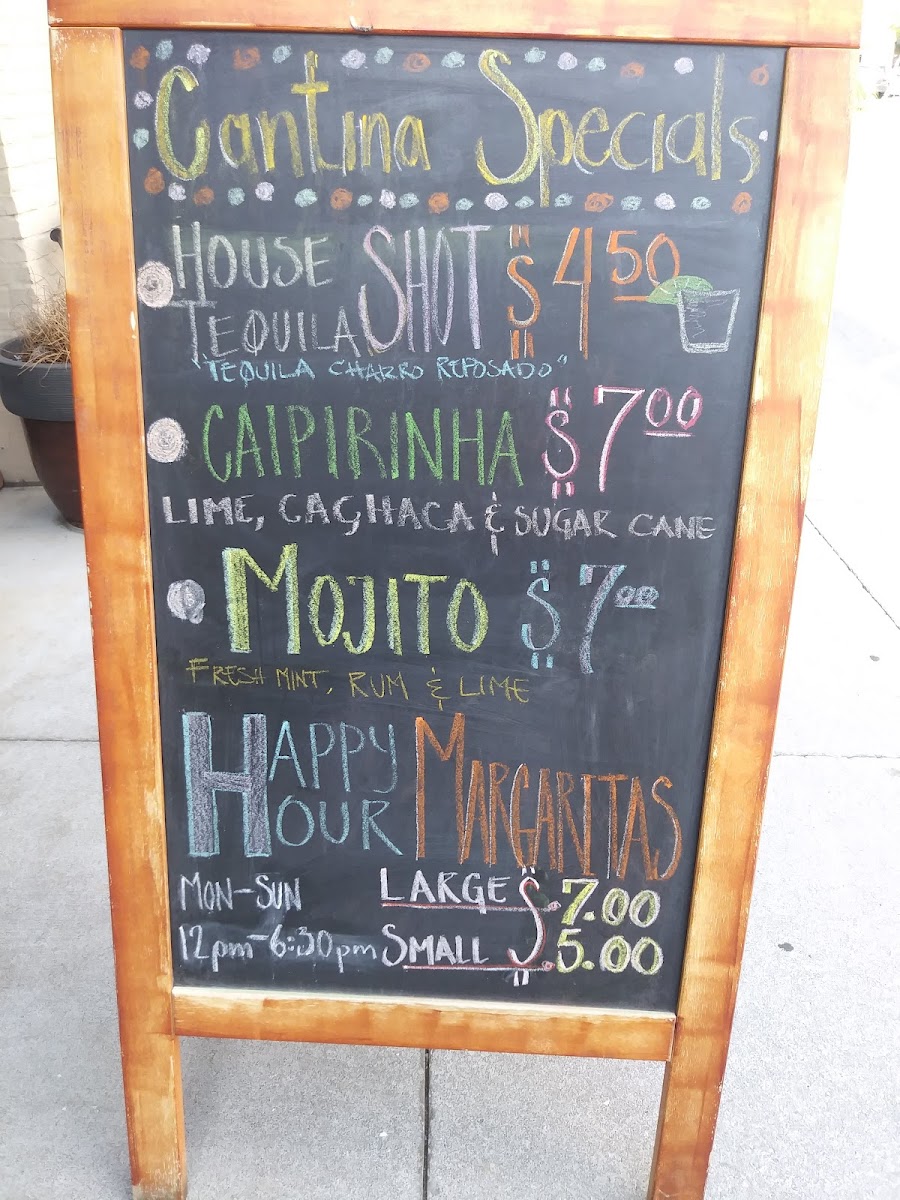 Cantina Specials
HOUSE TEQUILA SHOT $4 50
"TEQUILA CHARRO REPOSADO"
CAIPIRINHA $7 00
LIME, CAÇHACA & SUGAR CANE
MOJITO $7 00
FRESH MINT, RUM & LIME
HAPPY HOUR MARGARITAS
MON-SUN LARGE $7.00
12pm-6:30pm SMALL $5.00